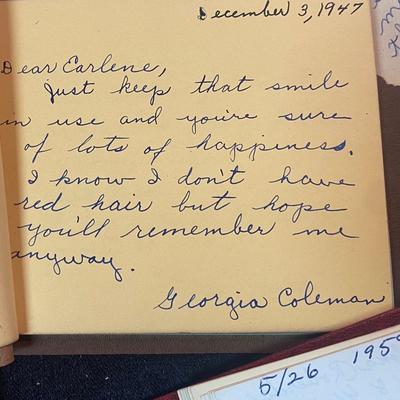 December 3, 1947
Dear Earlene,
Just keep that smile
in use and you're sure
of lots of happiness.
I know I don't have
red hair but hope
you'll remember me
anyway.
Georgia Coleman
5/26 1959